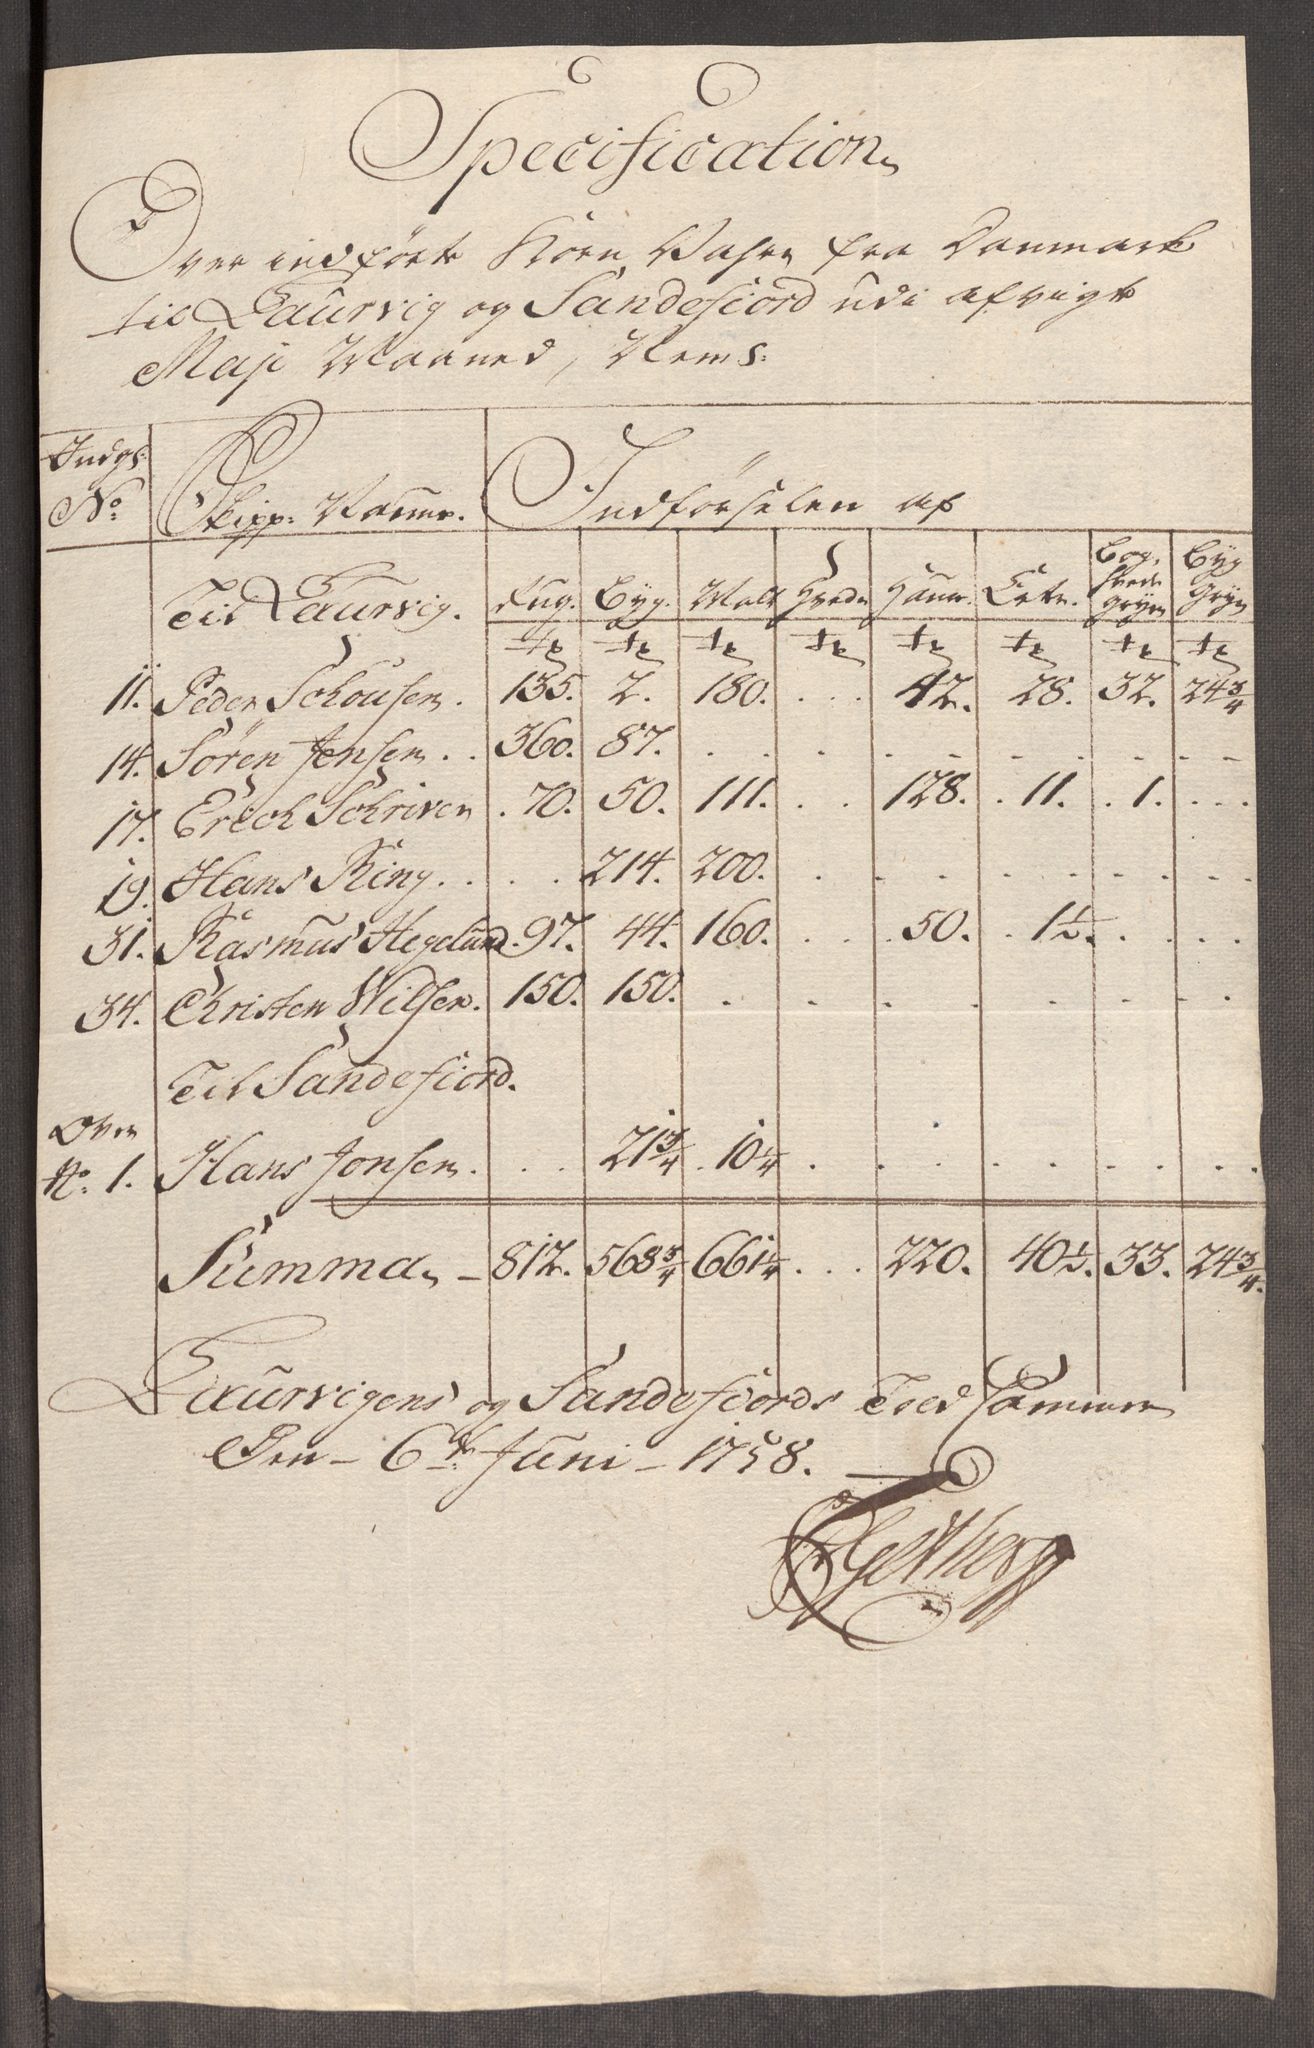 Specification
Over indført Korn Vahre fra Danmark
til Laurvig og Sandefiord udi afvigt
Maji Maaned, Nemf:
Indgs: No: Skipp: Nafne. Indførselen af
Til Laurvig. Rug. Byg. Malt Hvede Haure. Erter. Boghvede gryn Byg Gryn
tr tr tr tr tr tr tr tr
11. Peder Schousen. 135. 2. 180. . . . 42. 28. 32. 24 3/4
14. Sören Jensen. . 360. 87. . . . . . . . . .
17. Erech Schriver . 70. 50. 111. . . 128. . 11. . 1. . . .
19. Hans Ring. . . . 214. 200. . . . . . . . . .
31. Rasmus Hegelund. 97. 44. 160. . . . 50. . 1 1/2. . . . .
34. Christen Nilsen. 150. 150. . . . . . . . .
Til Sandefiord.
No: 1. Hans Jonsen. . . 21 3/4 . 10 1/4 . . . . . . . . .
Summa - 812. 568 3/4 661 1/4 . . . 220. 40 1/2. 33. 24 3/4.
Laurvigens og Sandefiords Told Cammer
Den - 6te Juni - 1758.